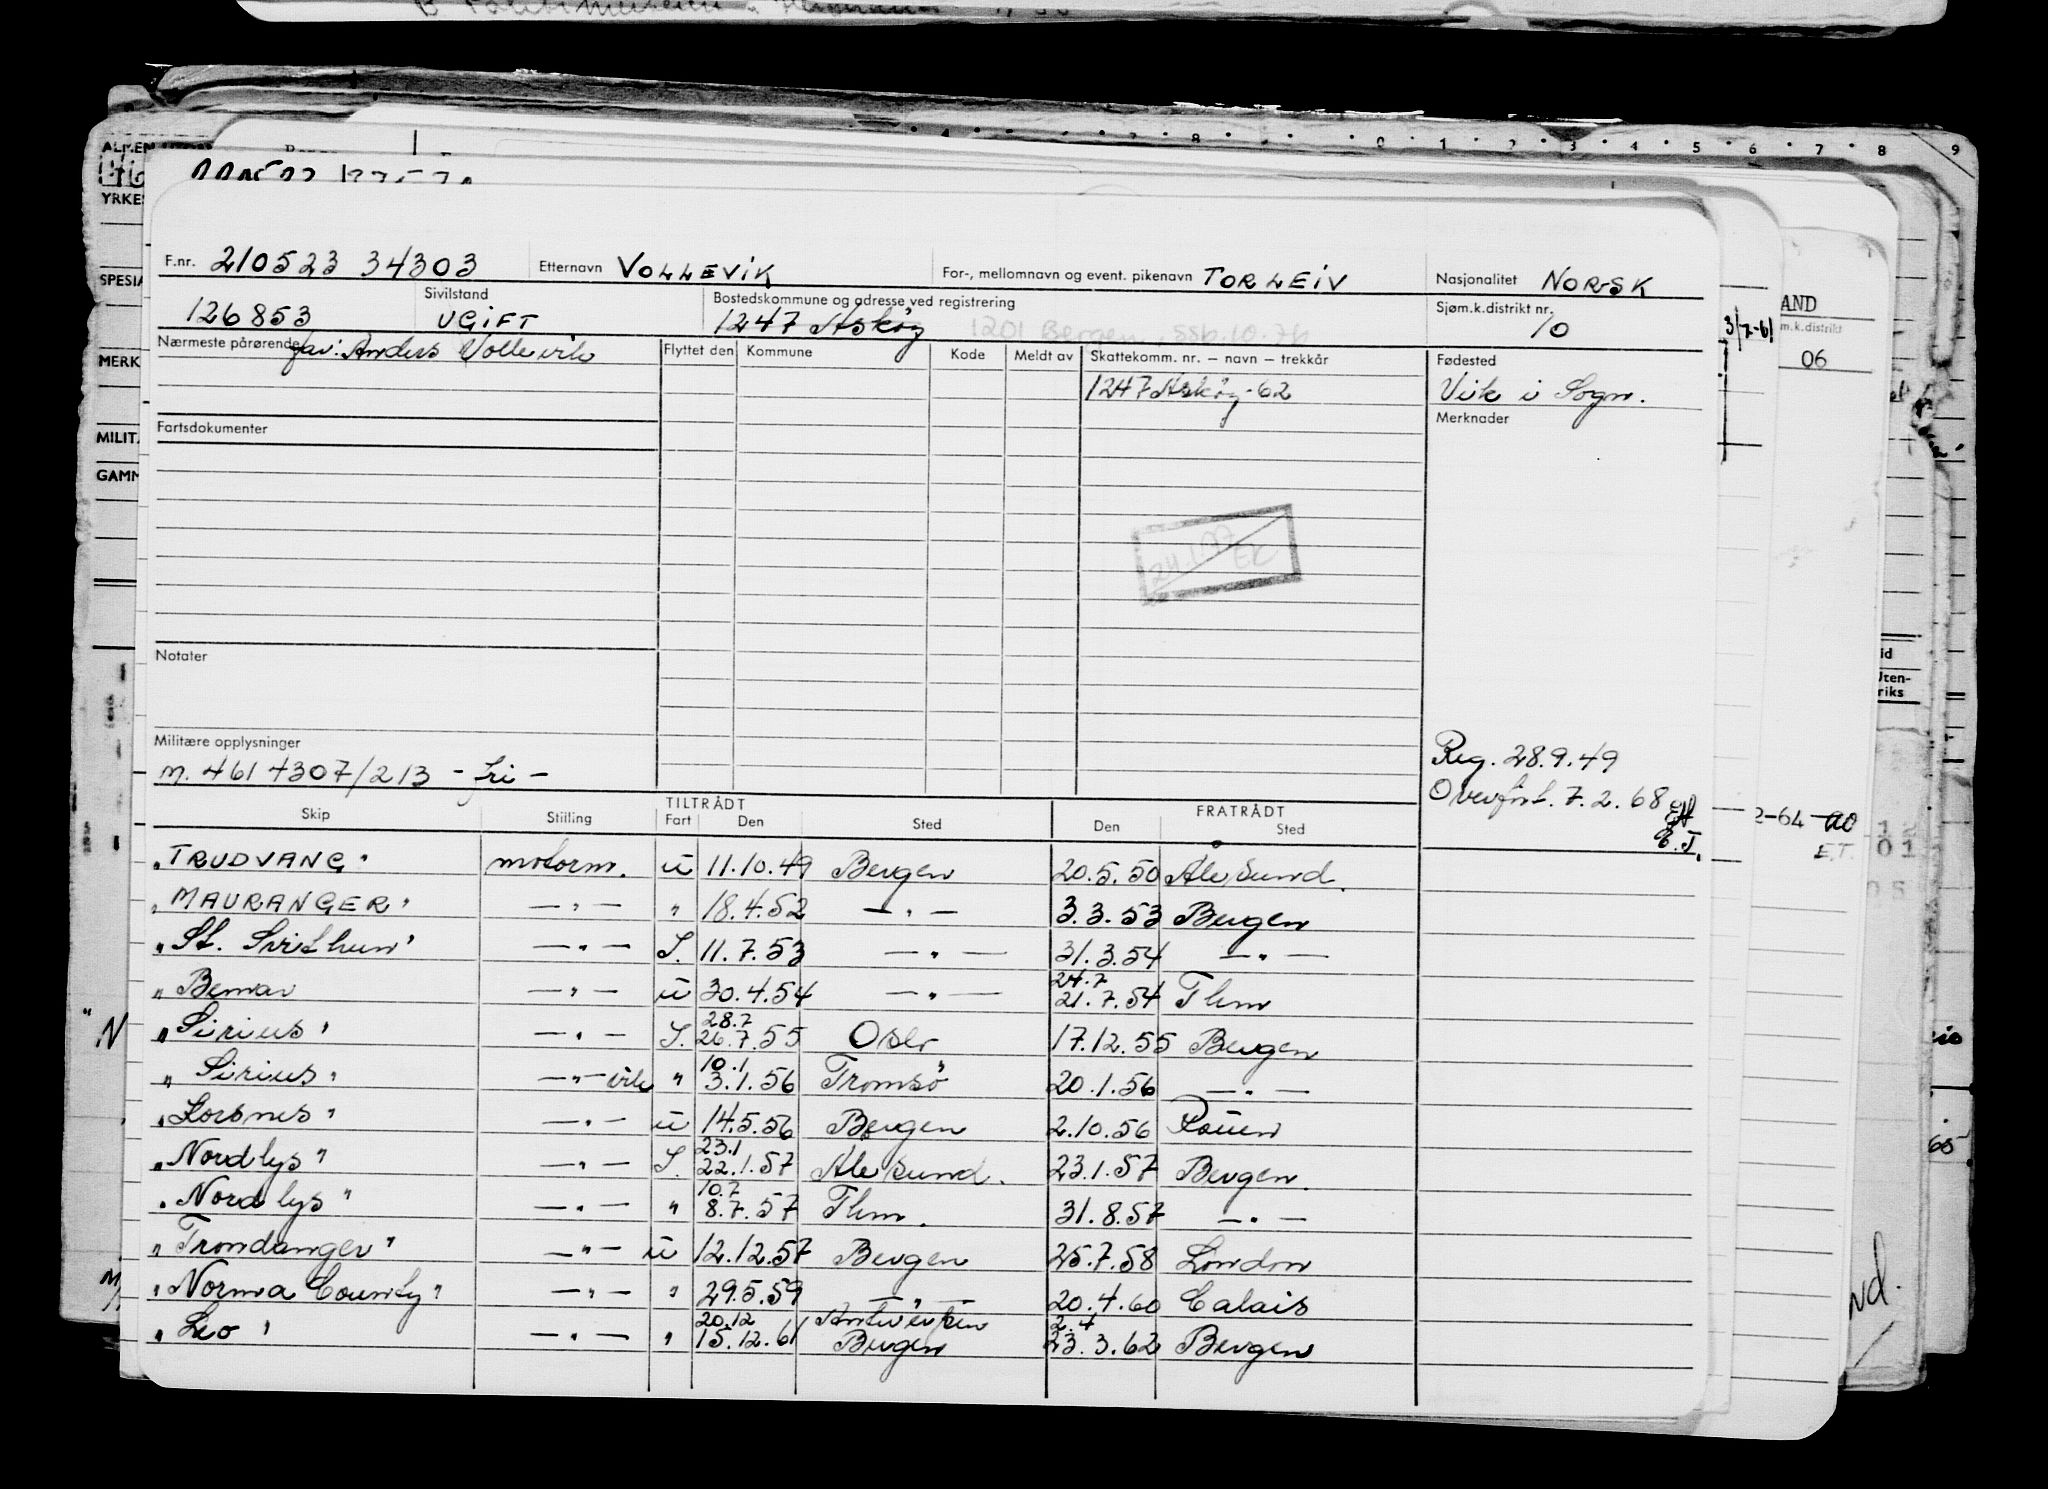 ALMEN
YRKE
SPESIA
MERK
MILIT.
GAMM
8 · 0 · 1 · 2 · 3 · 4 · 5 · 6 · 7 · 8 9
F.nr. 210523 34303 Etternavn VOLLEVIK For-, mellomnavn og event. pikenavn TORLEIV Nasjonalitet NORSK
126853 Sivilstand UGIFT Bostedskommune og adresse ved registrering 1247 Askøy 1201 Bergen, ssb.10.76 Sjøm.k.distrikt nr. 10
Nærmeste pårørende far: Anders Vollevik Flyttet den Kommune Kode Meldt av Skattekomm. nr. – navn – trekkår Fødested
1247 Askøy-62 Vik i Sogn.
Fartsdokumenter Merknader
EK
Notater
Militære opplysninger Reg. 28.9.49
m. 461 4307/213 - fri - Overført. 7.2.68
E.T.
TILTRÅDT FRATRÅDT
Skip Stilling Fart Den Sted Den Sted
"TRUDVANG" motorm. u 11.10.49 Bergen 20.5.50 Ålesund.
"MAURANGER" — " — " 18.4.52 — " — 3.3.53 Bergen
"St. Svithun" — " — I. 11.7.53 — " — 31.3.54 — " —
24.7
"Bemar — " — u 30.4.54 — " — 21.7.54 Thm
28.7
"Sirius" — " — I. 26.7.55 Oslo 17.12.55 Bergen
10.1
"Sirius" — " — vik " 3.1.56 Tromsø 20.1.56 — " —
"Korsnes" — " — u 14.5.56 Bergen 2.10.56 Rouen
23.1
"Nordlys" — " — I. 22.1.57 Ålesund. 23.1.57 Bergen.
10.7
"Nordlys" — " — " 8.7.57 Thm. 31.8.57 — " —
"Trondanger" — " — u 12.12.57 Bergen 25.7.58 London
"Norma County" — " — " 29.5.59 — " — 20.4.60 Calais
20.12 Antwerpen 2.4
"Leo" — " — " 15.12.61 Bergen 23.3.62 Bergen
AND
m.k.distrikt
06
3/7-61
2-64
E.T.
id
Uten-
riks
65